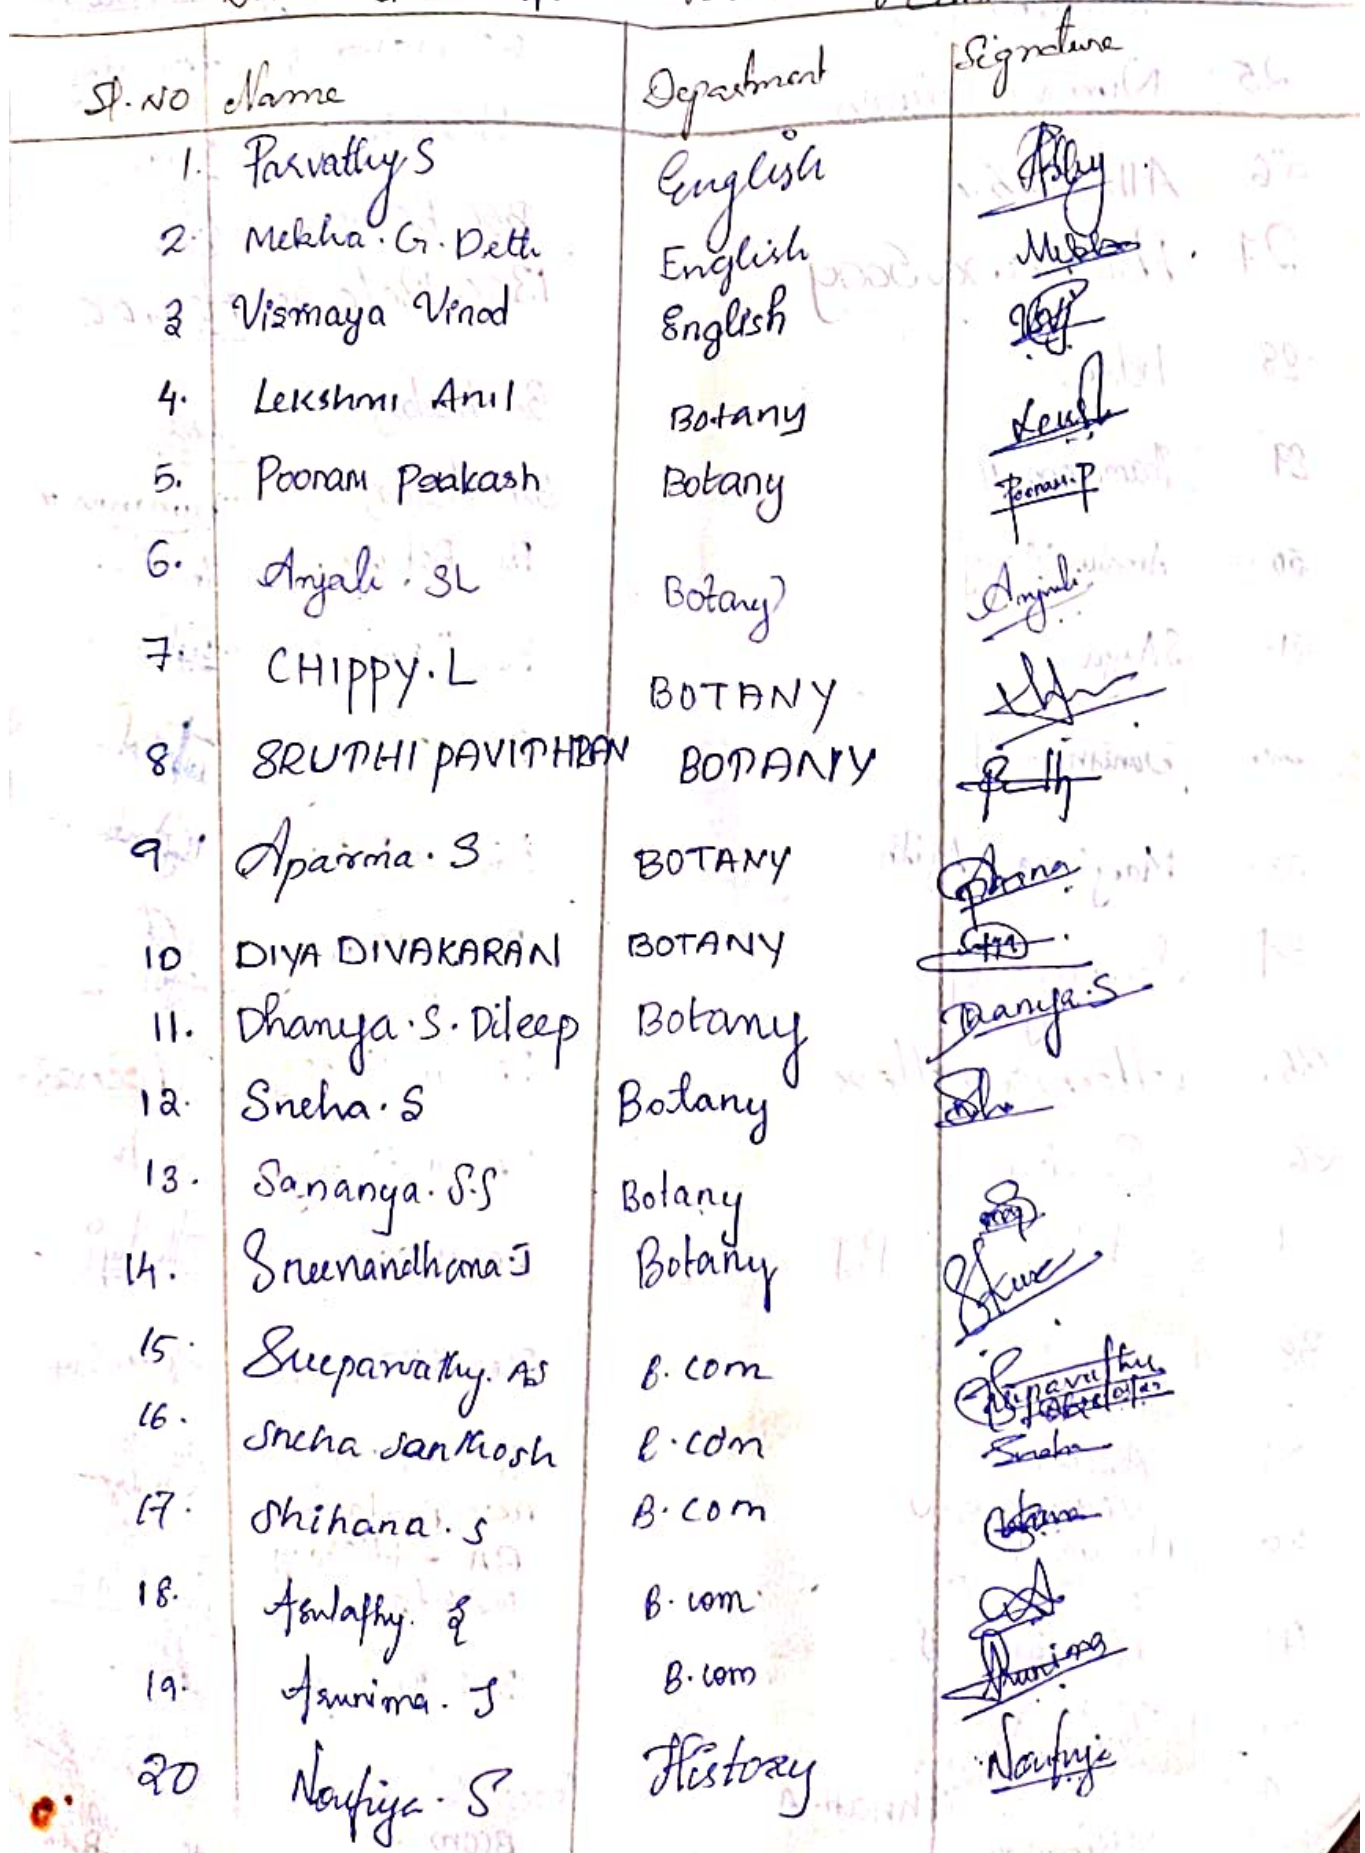 Sl. NO Name Department Signature
1. Parvathy S English
2. Mekha. G. Deth English Mekha
3 Vismaya Vinod English
4. Lekshmi Anil Botany
5. Poonam Prakash Botany Poonam. P
6. Anjali. SL Botany Anjali
7. CHIPPY. L BOTANY
8 SRUTHI PAVITHRAN BOTANY
9 Aparna. S BOTANY
10 DIYA DIVAKARAN BOTANY
11. Dhanya. S. Dileep Botany Dhanya. S
12. Sneha. S Botany
13. Sananya. S.S Botany
14. Sreenandhana. J Botany
15. Sreeparvathy. AS B. com Sreeparvathy
16. Sneha Santhosh B. com Sneha
17. Shihana. S B. com
18. B. com
19. Arunima. J B. com Arunima
20 Noufiya. S History Noufiya